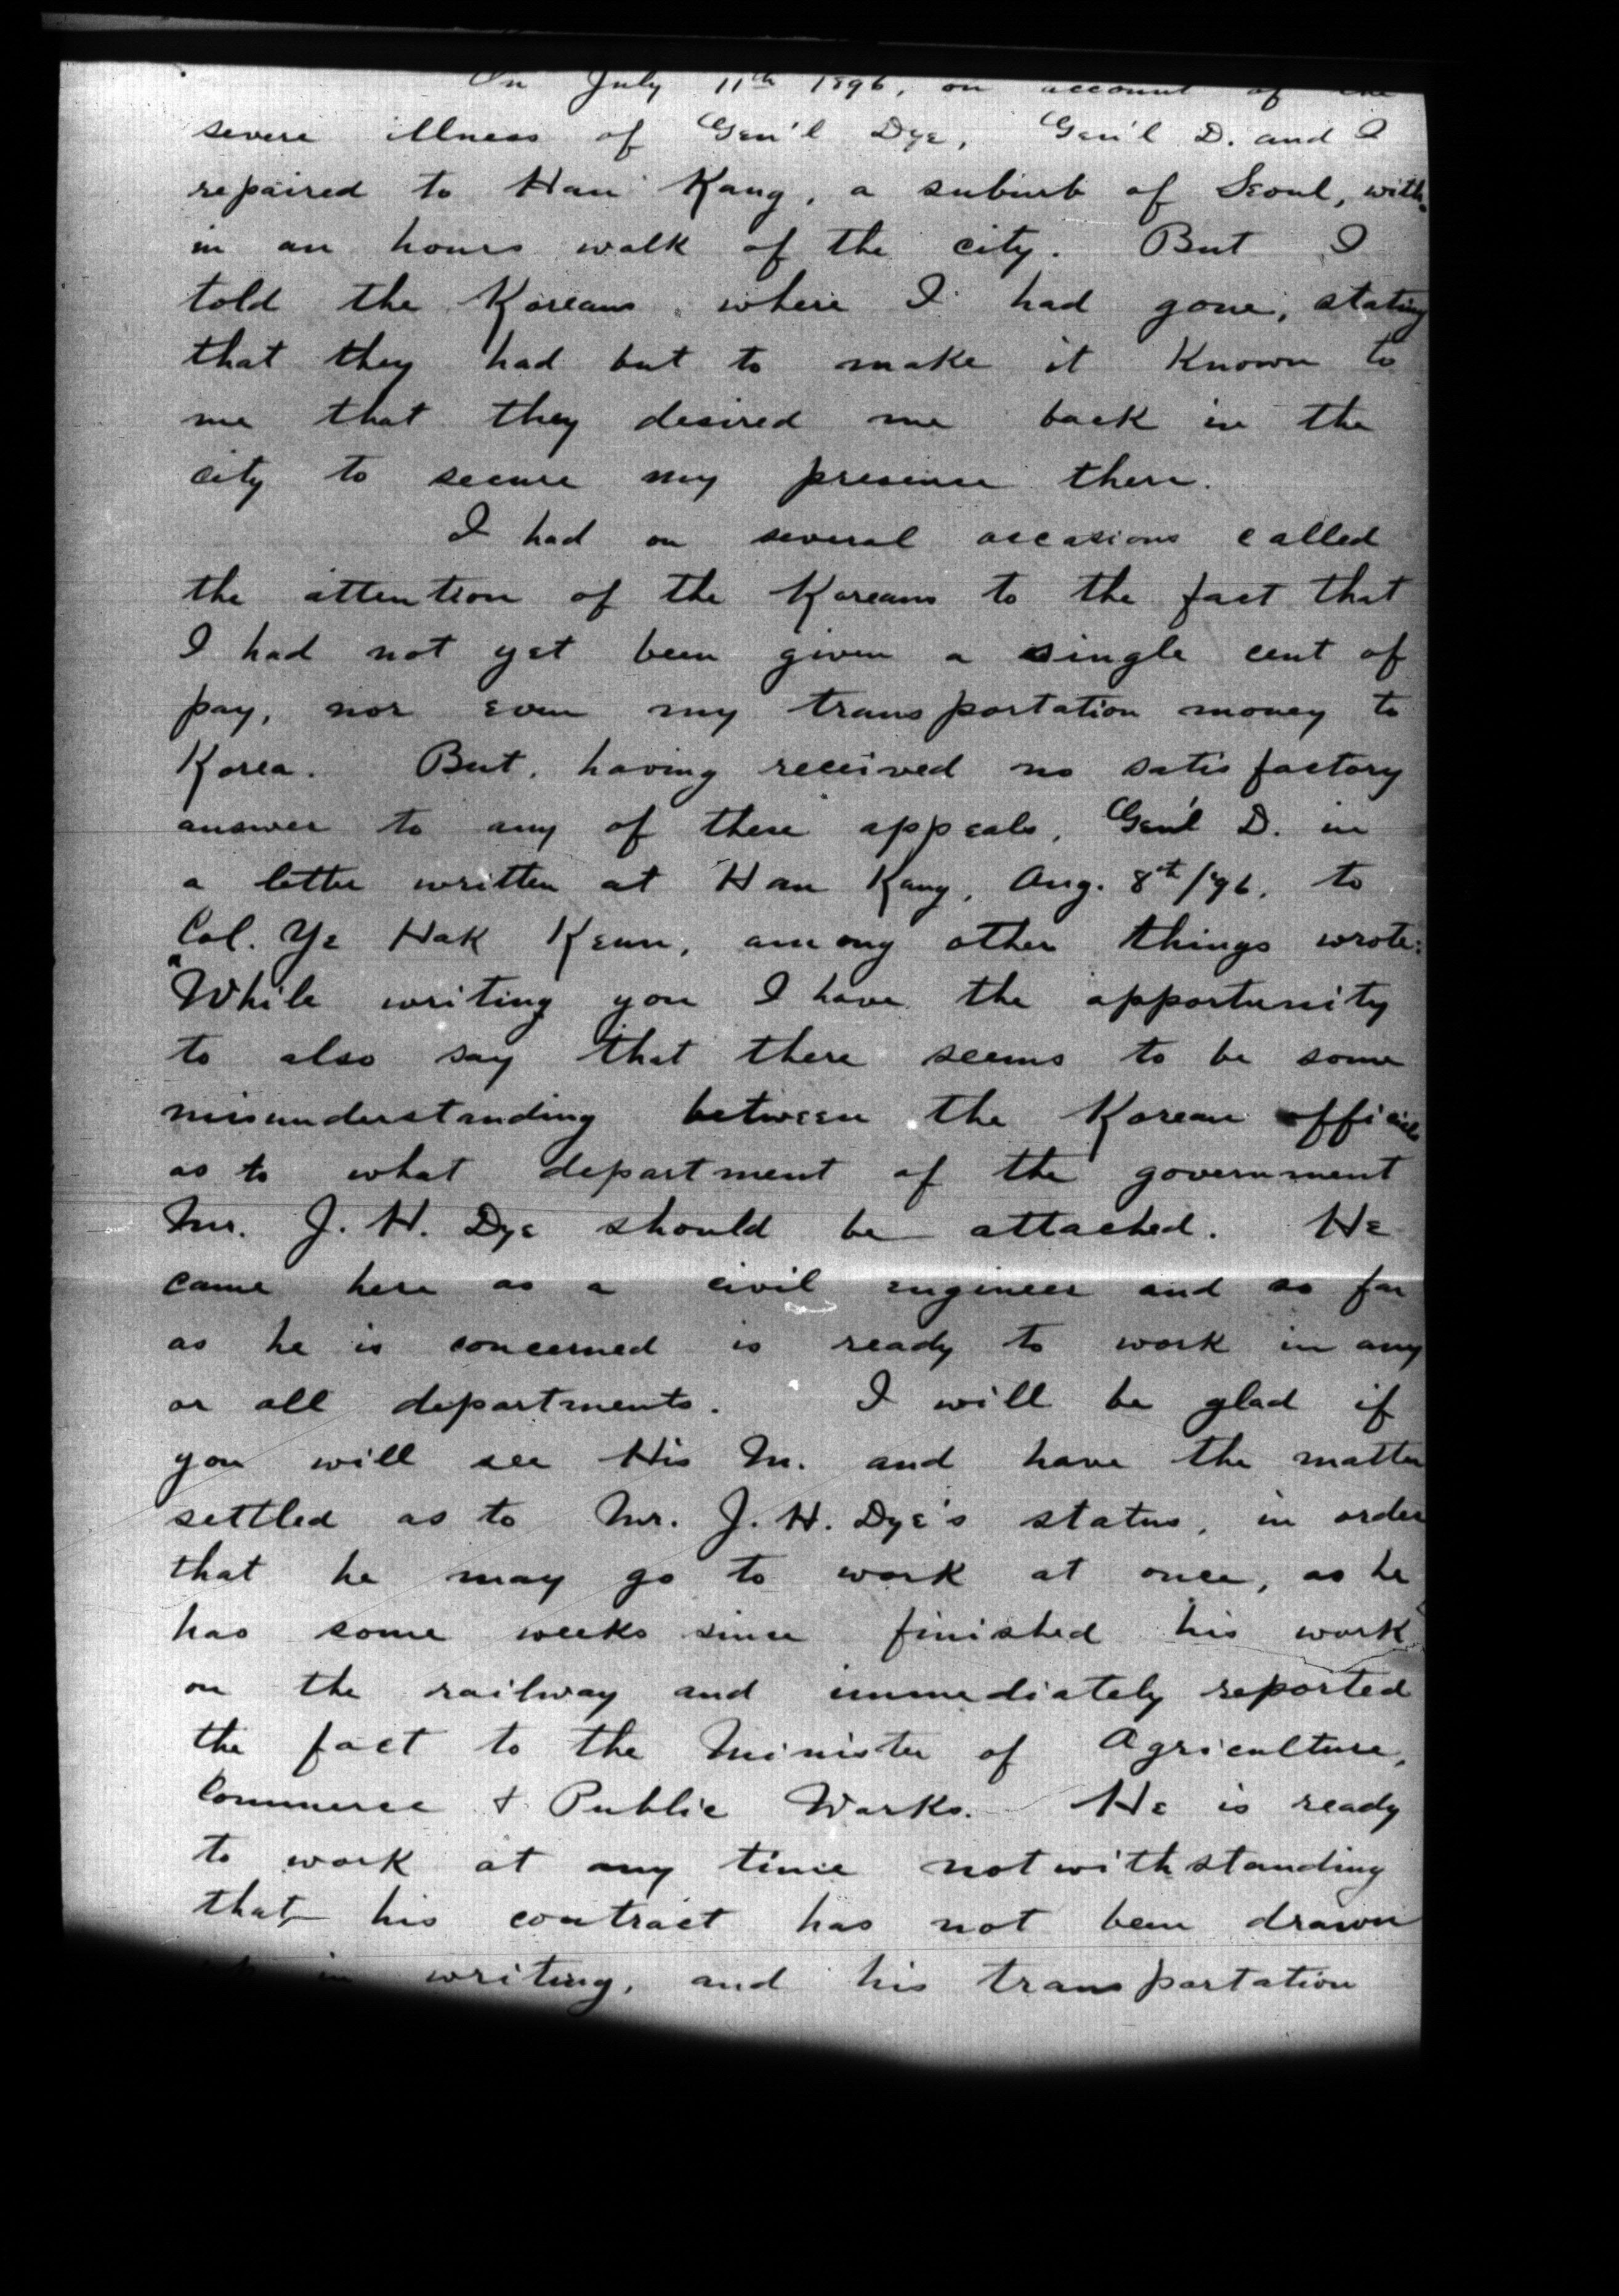 On July 11th 1896, on account of the
severe illness of Gen'l Dye, Gen'l D. and I
repaired to Han Kang, a suburb of Seoul, with-
in an hours walk of the city. But I
told the Koreans where I had gone, stating
that they had but to make it known to
me that they desired me back in the
city to secure my presence there.
I had on several occasions called
the attention of the Koreans to the fact that
I had not yet been given a single cent of
pay, nor even my transportation money to
Korea. But, having received no satisfactory
answer to any of these appeals, Gen'l D. in
a letter written at Han Kang, Aug. 8th/96, to
Col. Ye Hak Keun, among other things wrote:
"While writing you I have the opportunity
to also say that there seems to be some
misunderstanding between the Korean officials
as to what department of the government
Mr. J. H. Dye should be attached. He
came here as a civil engineer and so far
as he is concerned is ready to work in any
or all departments. I will be glad if
you will see His M. and have the matter
settled as to Mr. J. H. Dye's status, in order
that he may go to work at once, as he
has some weeks since finished his work
on the railway and immediately reported
the fact to the Minister of Agriculture,
Commerce & Public Works. He is ready
to work at any time notwithstanding
that his contract has not been drawn
in writing, and his transportation